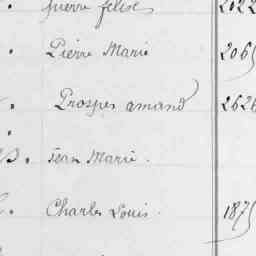 guerre felix 2022
Pierre Marie 2065
Prosper amand 2626
Jean Marie.
Charles Louis. 1875